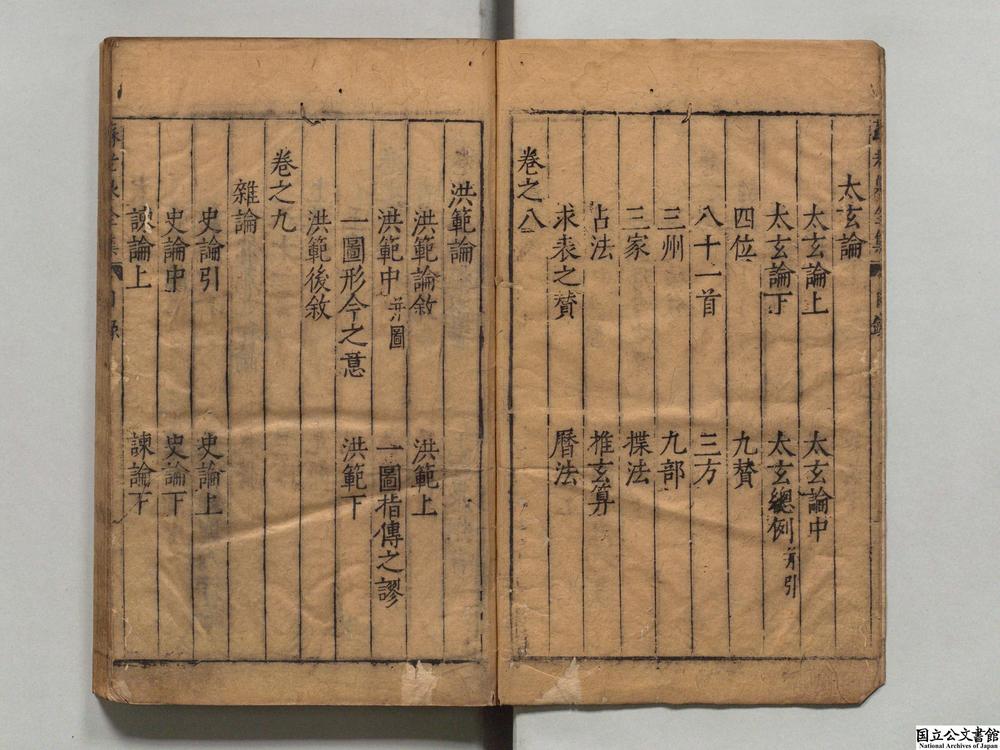 太玄論
太玄論上 太玄論中
太玄論下 太玄總例并引
四位 九賛
八十一首 三方
三州 九部
三家 揲法
占法 推玄算
求表之賛 曆法
卷之八
洪範論
洪範論敘 洪範上
洪範中并圖 一圖指傳之謬
一圖形今之意 洪範下
洪範後敘
卷之九
雜論
史論引 史論上
史論中 史論下
諫論上 諫論下
国立公文書館
National Archives of Japan